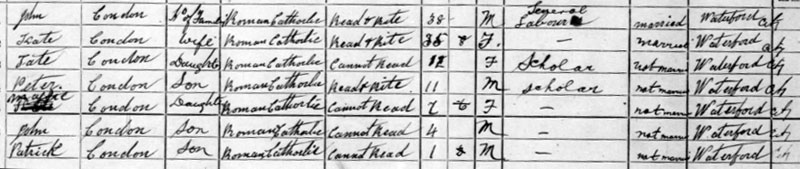 John Condon Hd of Family Roman Catholic Read & Rite 38 M General Labourer married Waterford City
Kate Condon Wife Roman Catholic Read & Rite 35 F — married Waterford City
Kate Condon Daughter Roman Catholic Cannot Read 12 F Scholar not married Waterford City
Peter Condon Son Roman Catholic Read & Rite 11 M Scholar not married Waterford City
Condon Daughter Roman Catholic Cannot Read F — not married Waterford City
John Condon Son Roman Catholic Cannot Read 4 M — not married Waterford City
Patrick Condon Son Roman Catholic Cannot Read 1 M — not married Waterford City